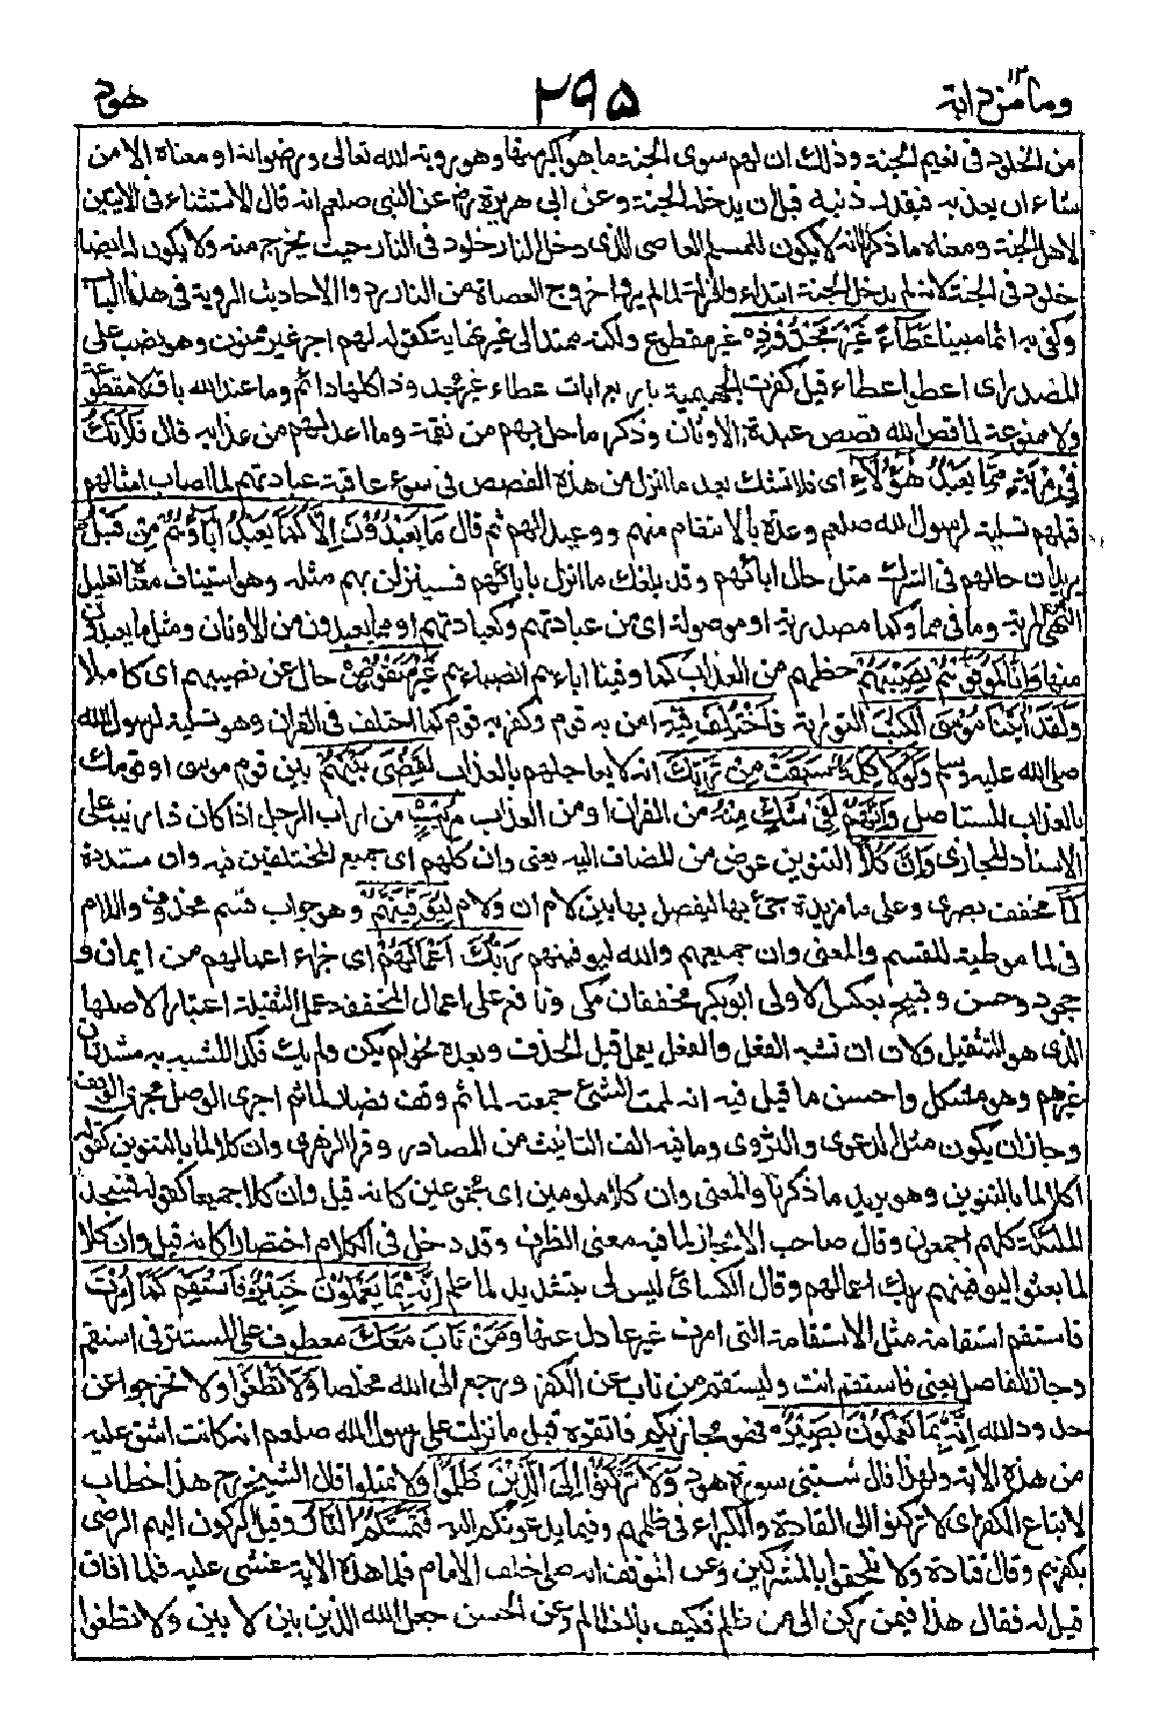 وما من دابة ١٢
٢٩٥
هود
من الخلود فى نعيم الجنة وذلك ان لهم سوى الجنة ما هو اكبر منها وهو روية الله تعالى ورضوانه او معناه الا من
شاء ان يعذبه فيقدر ذنبه قبل ان يدخله الجنة وعن ابى هريرة رضـ عن النبى صلعم انه قال الاستثناء فى الايتين
لاهل الجنة ومعناه ما ذكرنا انه لا يكون للمسلم العاصى الذى دخل النار خلود فى النار حيث يخرج منه ولا يكون له ايضا
خلود فى الجنة لانه لم يدخل الجنة ابتداء والمعتزلة لما لم يروا خروج العصاة من النار ردوا الاحاديث المروية فى هذا الباب
وكفى به اثما مبينا عَطَآءً غَيْرَ مَجْذُوْذٍ غير مقطوع ولكنه ممتد الى غير نهاية كقوله لهم اجر غير ممنون وهو نصب على
المصدر اى اعطوا عطاء قيل كفرت الجهمية باربع ايات عطاء غير مجذوذ اكلها دائم وما عند الله باق لا مقطوعة
ولا ممنوعة لما قص الله قصص عبدة الاوثان وذكر ما حل بهم من نقمة وما اعد لهم من عذابه قال فَلَا تَكُ
فِيْ مِرْيَةٍ مِّمَّا يَعْبُدُ هٰٓؤُلَآءِ اى فلا تشك بعد ما انزل من هذه القصص فى سوء عاقبة عبادتهم لما اصاب امثالهم
قبلهم تسلية لرسول الله صلعم وعدة بالانتقام منهم ووعيدا لهم ثم قال مَا يَعْبُدُوْنَ اِلَّا كَمَا يَعْبُدُ اٰبَآؤُهُمْ مِّنْ قَبْلُ
يريد ان حالهم فى الشرك مثل حال ابائهم وقد بلغك ما انزل بابائهم فسينزلن بهم مثله وهو استيناف معناه تعليل
النهى عن المرية وما فى مما وكما مصدرية او موصولة اى من عبادتهم وكعبادتهم او مما يعبدون من الاوثان ومثل ما يعبدون
منها وَاِنَّا لَمُوَفُّوْهُمْ نَصِيْبَهُمْ حظهم من العذاب كما وفينا اباءهم انصباءهم غَيْرَ مَنْقُوْصٍ حال عن نصيبهم اى كاملا
وَلَقَدْ اٰتَيْنَا مُوْسَى الْكِتٰبَ التوراية فَاخْتُلِفَ فِيْهِ امن به قوم وكفر به قوم كما اختلف فى القران وهو تسلية لرسول الله
صلى الله عليه وسلم وَلَوْلَا كَلِمَةٌ سَبَقَتْ مِنْ رَّبِّكَ انه لا يعاجلهم بالعذاب لَقُضِيَ بَيْنَهُمْ بين قوم موسى او قومك
بالعذاب المستاصل وَاِنَّهُمْ لَفِيْ شَكٍّ مِّنْهُ من القران او من العذاب مُرِيْبٍ من اراب الرجل اذا كان ذا ريبة على
الاسناد المجازى وَاِنَّ كُلًّا التنوين عوض من المضاف اليه يعنى وان كلهم اى جميع المختلفين فيه وان مشددة
لَّمَّا مخفف بصرى وعلى ما مزيدة جئ بها ليفصل بها بين لام ان ولام لَيُوَفِّيَنَّهُمْ وهو جواب قسم محذوف واللام
فى لما موطئة للقسم والمعنى وان جميعهم والله ليوفينهم رَبُّكَ اَعْمَالَهُمْ اى جزاء اعمالهم من ايمان و
جحود وحسن وقبيح بعكس الاولى ابوبكر مخففان مكى ونافع على اعمال المخففة عمل الثقيلة اعتبارا لاصلها
الذى هو التثقيل ولان ان تشبه الفعل والفعل يعمل قبل الحذف وبعده نحو لم يكن ولم يك فكذا المشبه به مشددتان
غيرهم وهو مشكل واحسن ما قيل فيه انه من لممت الشئ جمعته لما ثم وقف فصار لما ثم اجرى الوصل مجرى الوقف
وجاز ان يكون مثل الدعوى والثروى وما فيه الف التانيث من المصادر وقرا الزهرى وان كلا لما بالتنوين كقوله
اكلا لما بالتنوين وهو يريد ما ذكرنا والمعنى وان كلا ملمومين اى مجموعين كانه قيل وان كلا جميعا كقوله فسجد
الملئكة كلهم اجمعون وقال صاحب الايجاز لما فيه معنى الظرف وقد دخل فى الكلام اختصارا كانه قيل وان كلا
لما بعثوا ليوفينهم ربك اعمالهم وقال الكسائى ليس لى بتشديد لما علم اِنَّهٗ بِمَا يَعْمَلُوْنَ خَبِيْرٌ فَاسْتَقِمْ كَمَآ اُمِرْتَ
فاستقم استقامة مثل الاستقامة التى امرت غير عادل عنها وَمَنْ تَابَ مَعَكَ معطوف على المستتر فى استقم
وجاز للفاصل يعنى فاستقم انت وليستقم من تاب عن الكفر ورجع الى الله مخلصا وَلَا تَطْغَوْا ولا تخرجوا عن
حدود الله اِنَّهٗ بِمَا تَعْمَلُوْنَ بَصِيْرٌ فهو مجازيكم فاتقوه قيل ما نزلت على رسول الله صلعم اية كانت اشق عليه
من هذه الاية ولهذا قال شيبتنى سورة هود وَلَا تَرْكَنُوْٓا اِلَى الَّذِيْنَ ظَلَمُوْا ولا تميلوا قال الشيخ رح هذا خطاب
لاتباع الكفرة اى لا تركنوا الى القادة والكبراء فى ظلمهم وفيما يدعونكم اليه فَتَمَسَّكُمُ النَّارُ وقيل الركون اليهم الرضى
بكفرهم وقال قتادة ولا تلحقوا بالمشركين وعن الموفق انه صلى خلف الامام فلما قرأ هذه الاية غشى عليه فلما افاق
قيل له فقال هذا فيمن ركن الى من ظلم فكيف بالظالم وعن الحسن جعل الله الدين بين لا بين ولا تطغوا